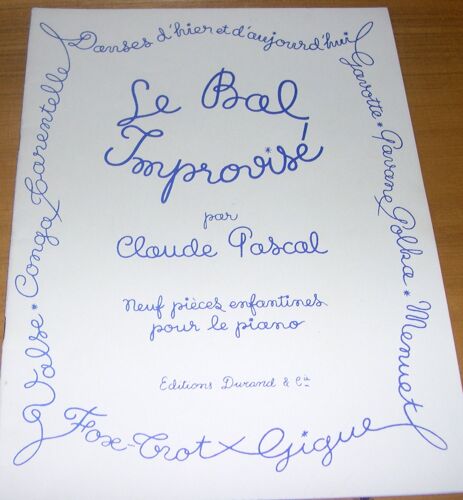 Danses d'hier et d'aujourd'hui
Le Bal
Improvisé
par
Claude Pascal
Neuf pièces enfantines
pour le piano
Editions Durand & Cie
Gavotte * Pavane Polka * Menuet
Gigue
Fox-Trot
Valse * Conga Tarentelle